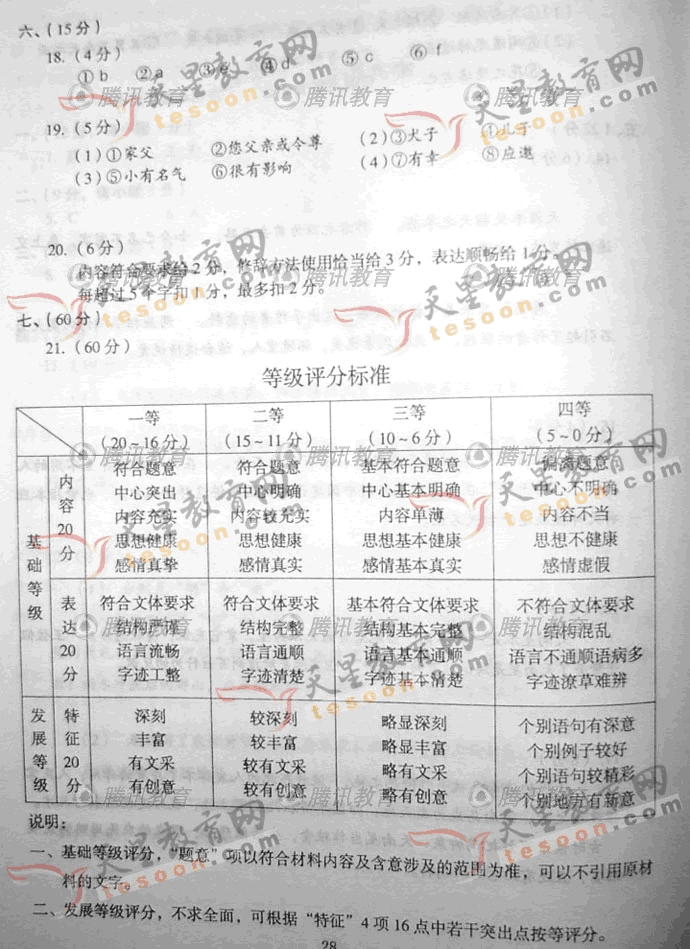 六、(15分)
18.(4分)
①b ②a ③e ④d ⑤c ⑥f
19.(5分)
(1)①家父 ②您父亲或令尊 (2)③犬子 ①儿子
(3)⑤小有名气 ⑥很有影响 (4)⑦有幸 ⑧应邀
20.(6分)
内容符合要求给2分，修辞方法使用恰当给3分，表达顺畅给1分。
每超过5个字扣1分，最多扣2分。
七、(60分)
21.(60分)
等级评分标准
一等 二等 三等 四等
(20~16分) (15~11分) (10~6分) (5~0分)
基础等级
内容20分
符合题意 符合题意 基本符合题意 偏离题意
中心突出 中心明确 中心基本明确 中心不明确
内容充实 内容较充实 内容单薄 内容不当
思想健康 思想健康 思想基本健康 思想不健康
感情真挚 感情真实 感情基本真实 感情虚假
表达20分
符合文体要求 符合文体要求 基本符合文体要求 不符合文体要求
结构严谨 结构完整 结构基本完整 结构混乱
语言流畅 语言通顺 语言基本通顺 语言不通顺语病多
字迹工整 字迹清楚 字迹基本清楚 字迹潦草难辨
发展等级
特征20分
深刻 较深刻 略显深刻 个别语句有深意
丰富 较丰富 略显丰富 个别例子较好
有文采 较有文采 略有文采 个别语句较精彩
有创意 较有创意 略有创意 个别地方有新意
说明:
一、基础等级评分，“题意”项以符合材料内容及含意涉及的范围为准，可以不引用原材
料的文字。
二、发展等级评分，不求全面，可根据“特征”4项16点中若干突出点按等评分。
28
天星教育网
tesoon.com
腾讯教育